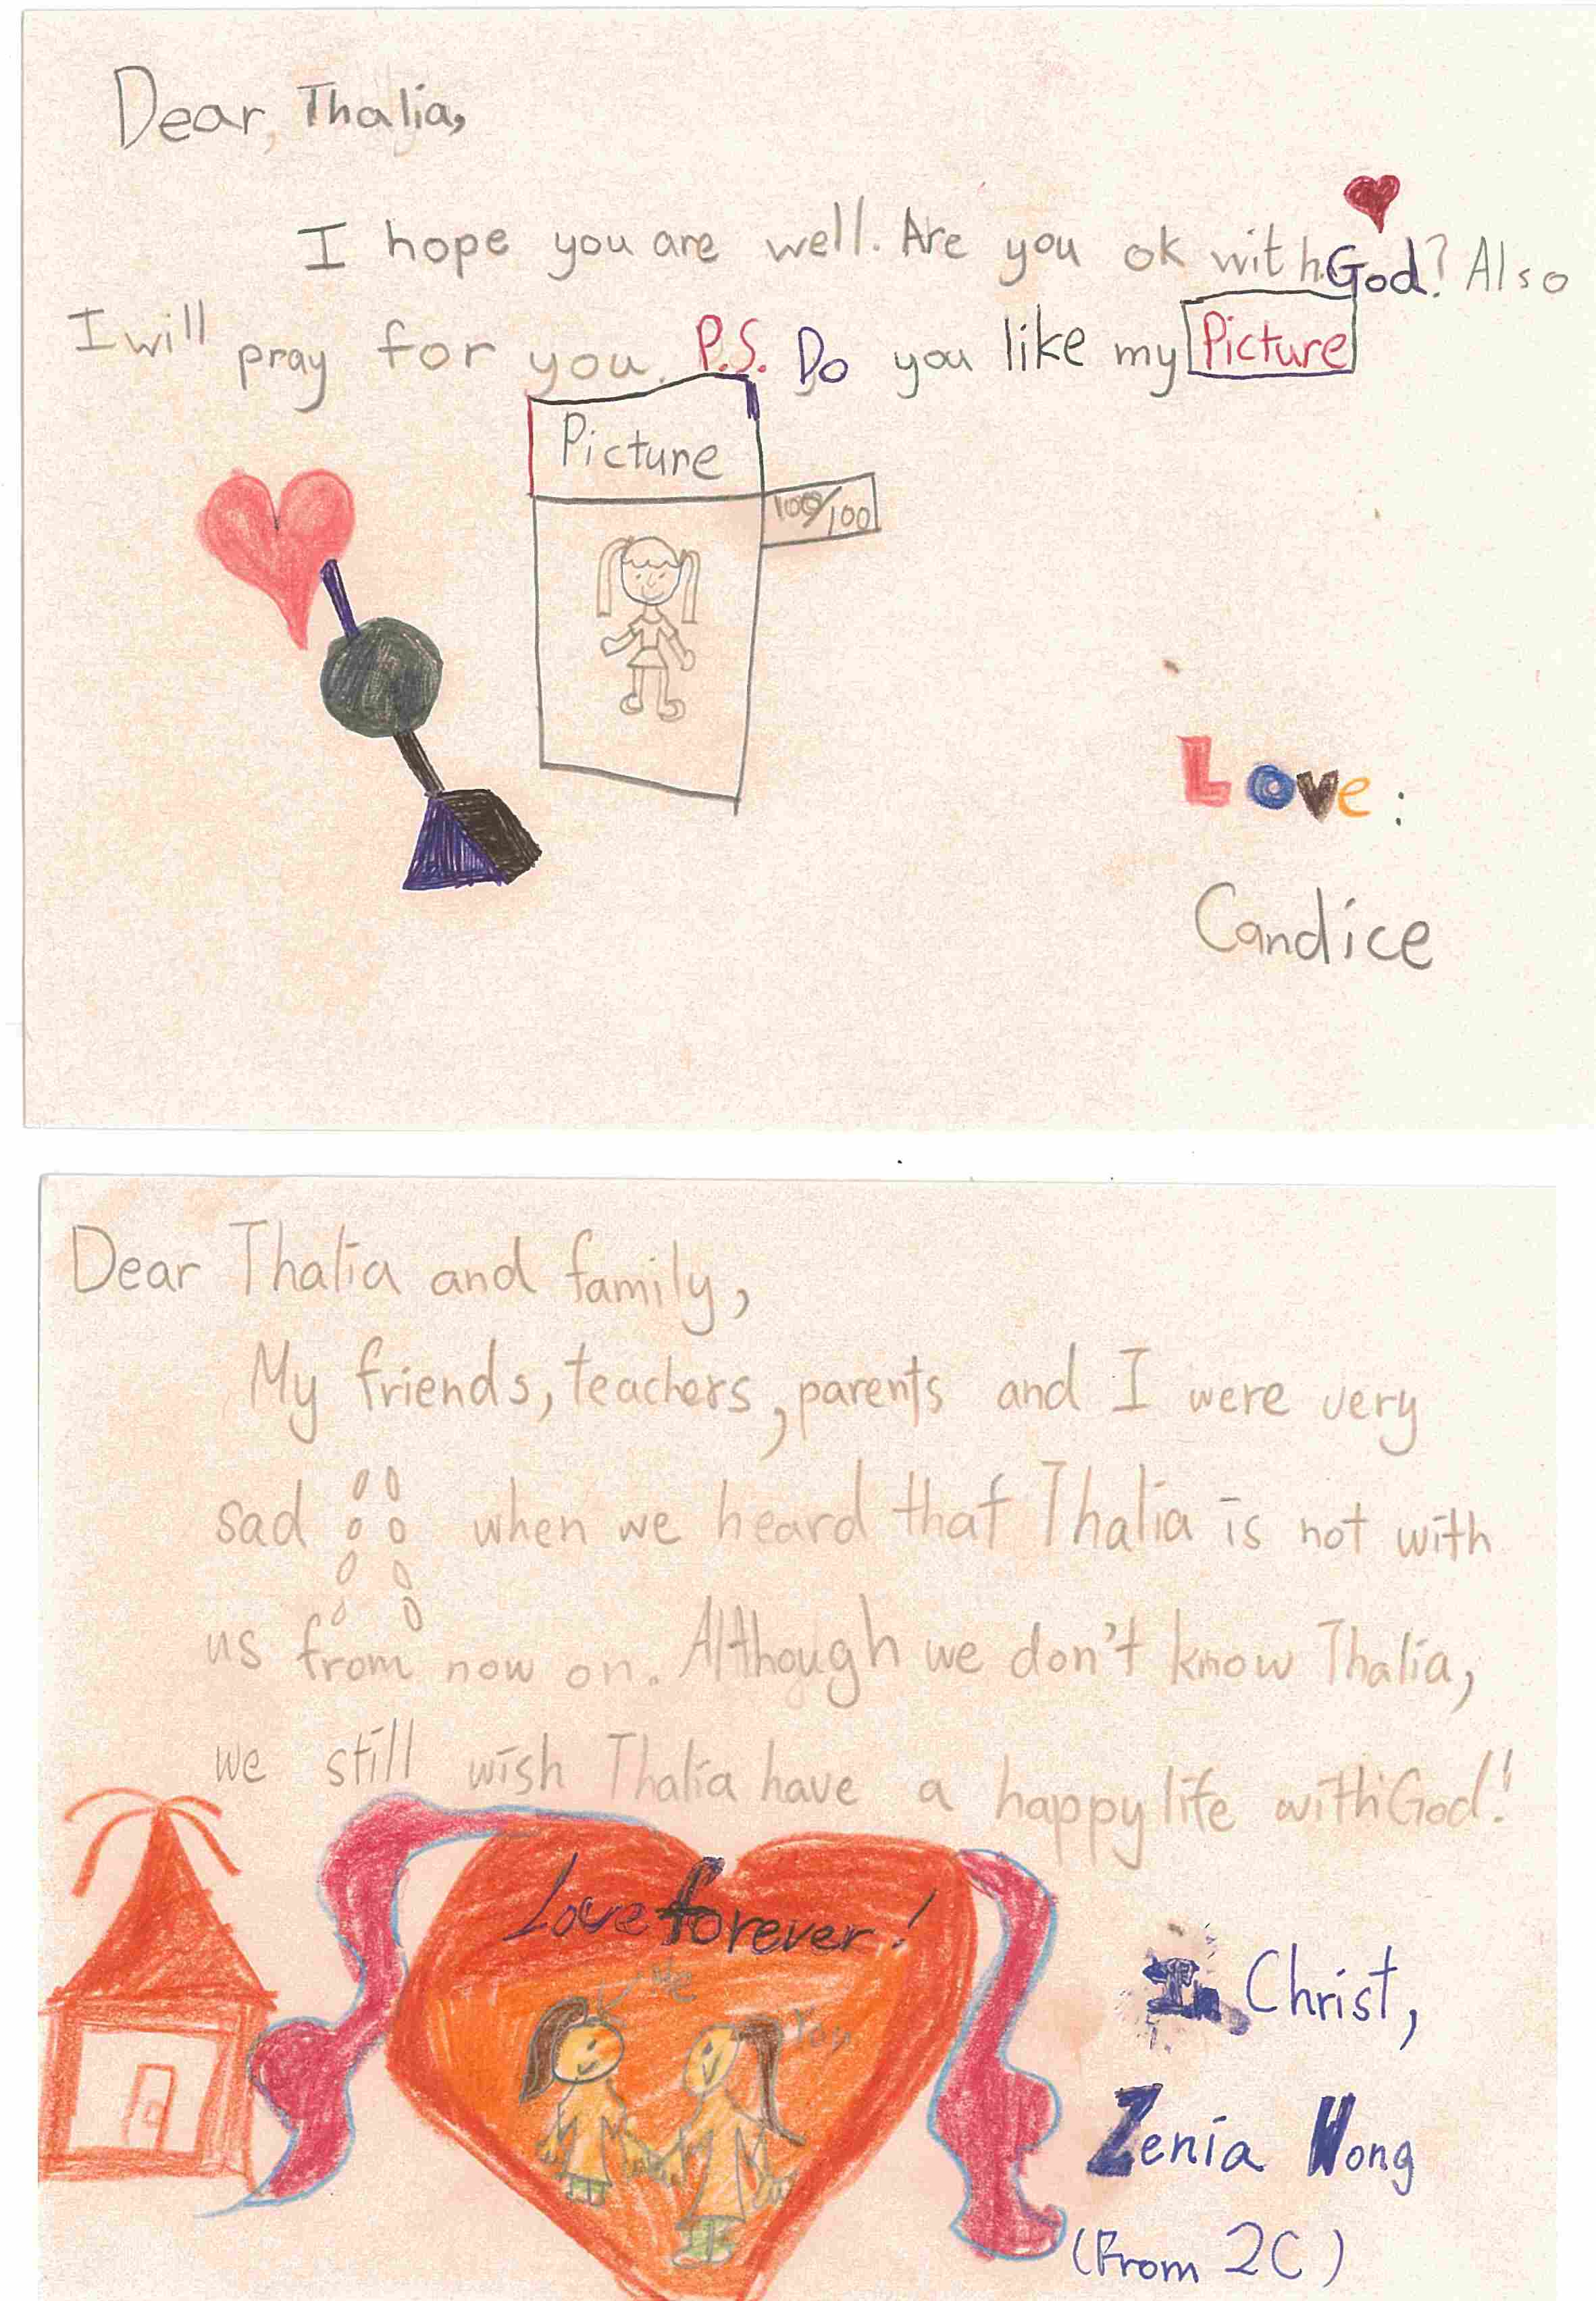 Dear, Thalia,
I hope you are well. Are you ok with God? Also
I will pray for you. P.S. Do you like my Picture
Picture
100/100
Love:
Candice
Dear Thalia and family,
My friends, teachers, parents and I were very
sad when we heard that Thalia is not with
us from now on. Although we don't know Thalia,
we still wish Thalia have a happy life with God!
Love forever!
Me
You
In Christ,
Zenia Wong
(From 2C)